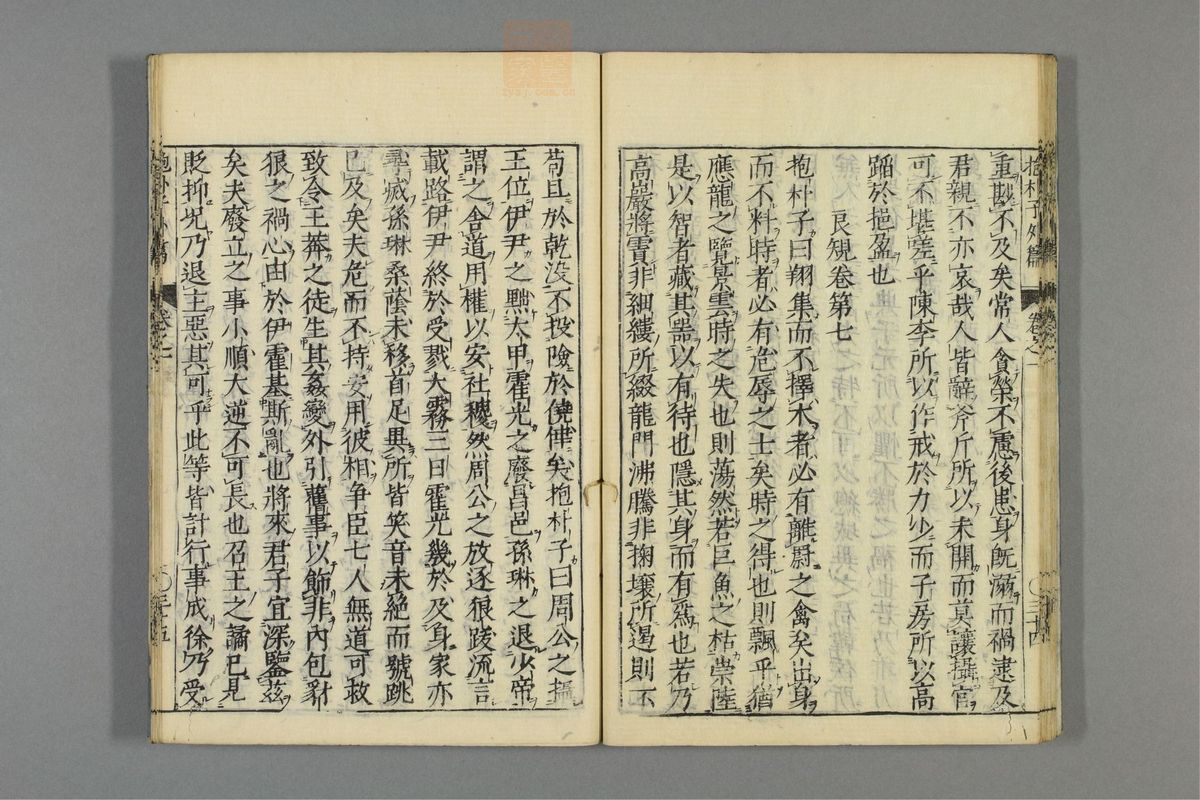 重戡不及矣常人貪榮不慮後患身既溺而禍逮及
君親不亦哀哉人皆辭斧斤所以未開而莫讓攝官
可不堪嗟乎陳李所以作戒於力少而子房所以高
蹈於挹盈也
良規卷第七
抱朴子曰翔集而不擇木者必有離罻之禽矣出身
而不料時者必有危辱之士矣時之得也則飄乎猶
應龍之覽景雲時之失也則蕩然若巨魚之枯崇陸
是以智者藏其器以有待也隱其身而有爲也若乃
高巖將霣非細縷所綴龍門沸騰非掬壤所遏則不
苟且於乾没不投險於僥倖矣抱朴子曰周公之攝
王位伊尹之黜太甲霍光之廢昌邑孫琳之退少帝
謂之舍道用權以安社稷然周公之放逐狼跋流言
載路伊尹終於受戮大霧三日霍光幾於及身家亦
尋滅孫琳桑蔭未移首足異所皆笑音未絶而號跳
已及矣夫危而不持安用彼相争臣七人無道可救
致令王莽之徒生其姦變外引舊事以飾非內包豺
狼之禍心由於伊霍基斯亂也將來君子宜深鑒茲
矣夫廢立之事小順大逆不可長也召王之譎已見
貶抑况乃退主惡其可乎此等皆計行事成徐乃受
抱朴子外篇
卷之一
三十四
抱朴子外篇
卷之一
三十五
zysj.com.cn